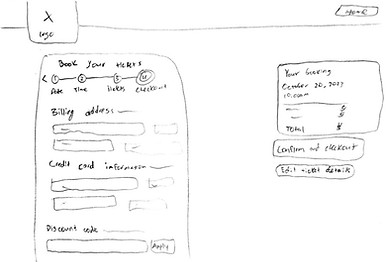 X
logo
HOME
Book Your tickets
1 2 3
Date Time tickets checkout
Billing address
Credit card information
Discount code
Apply
Your Booking
October 20, 2023
10:00am
$
$
TOTAL $
Confirm and checkout
Edit ticket details